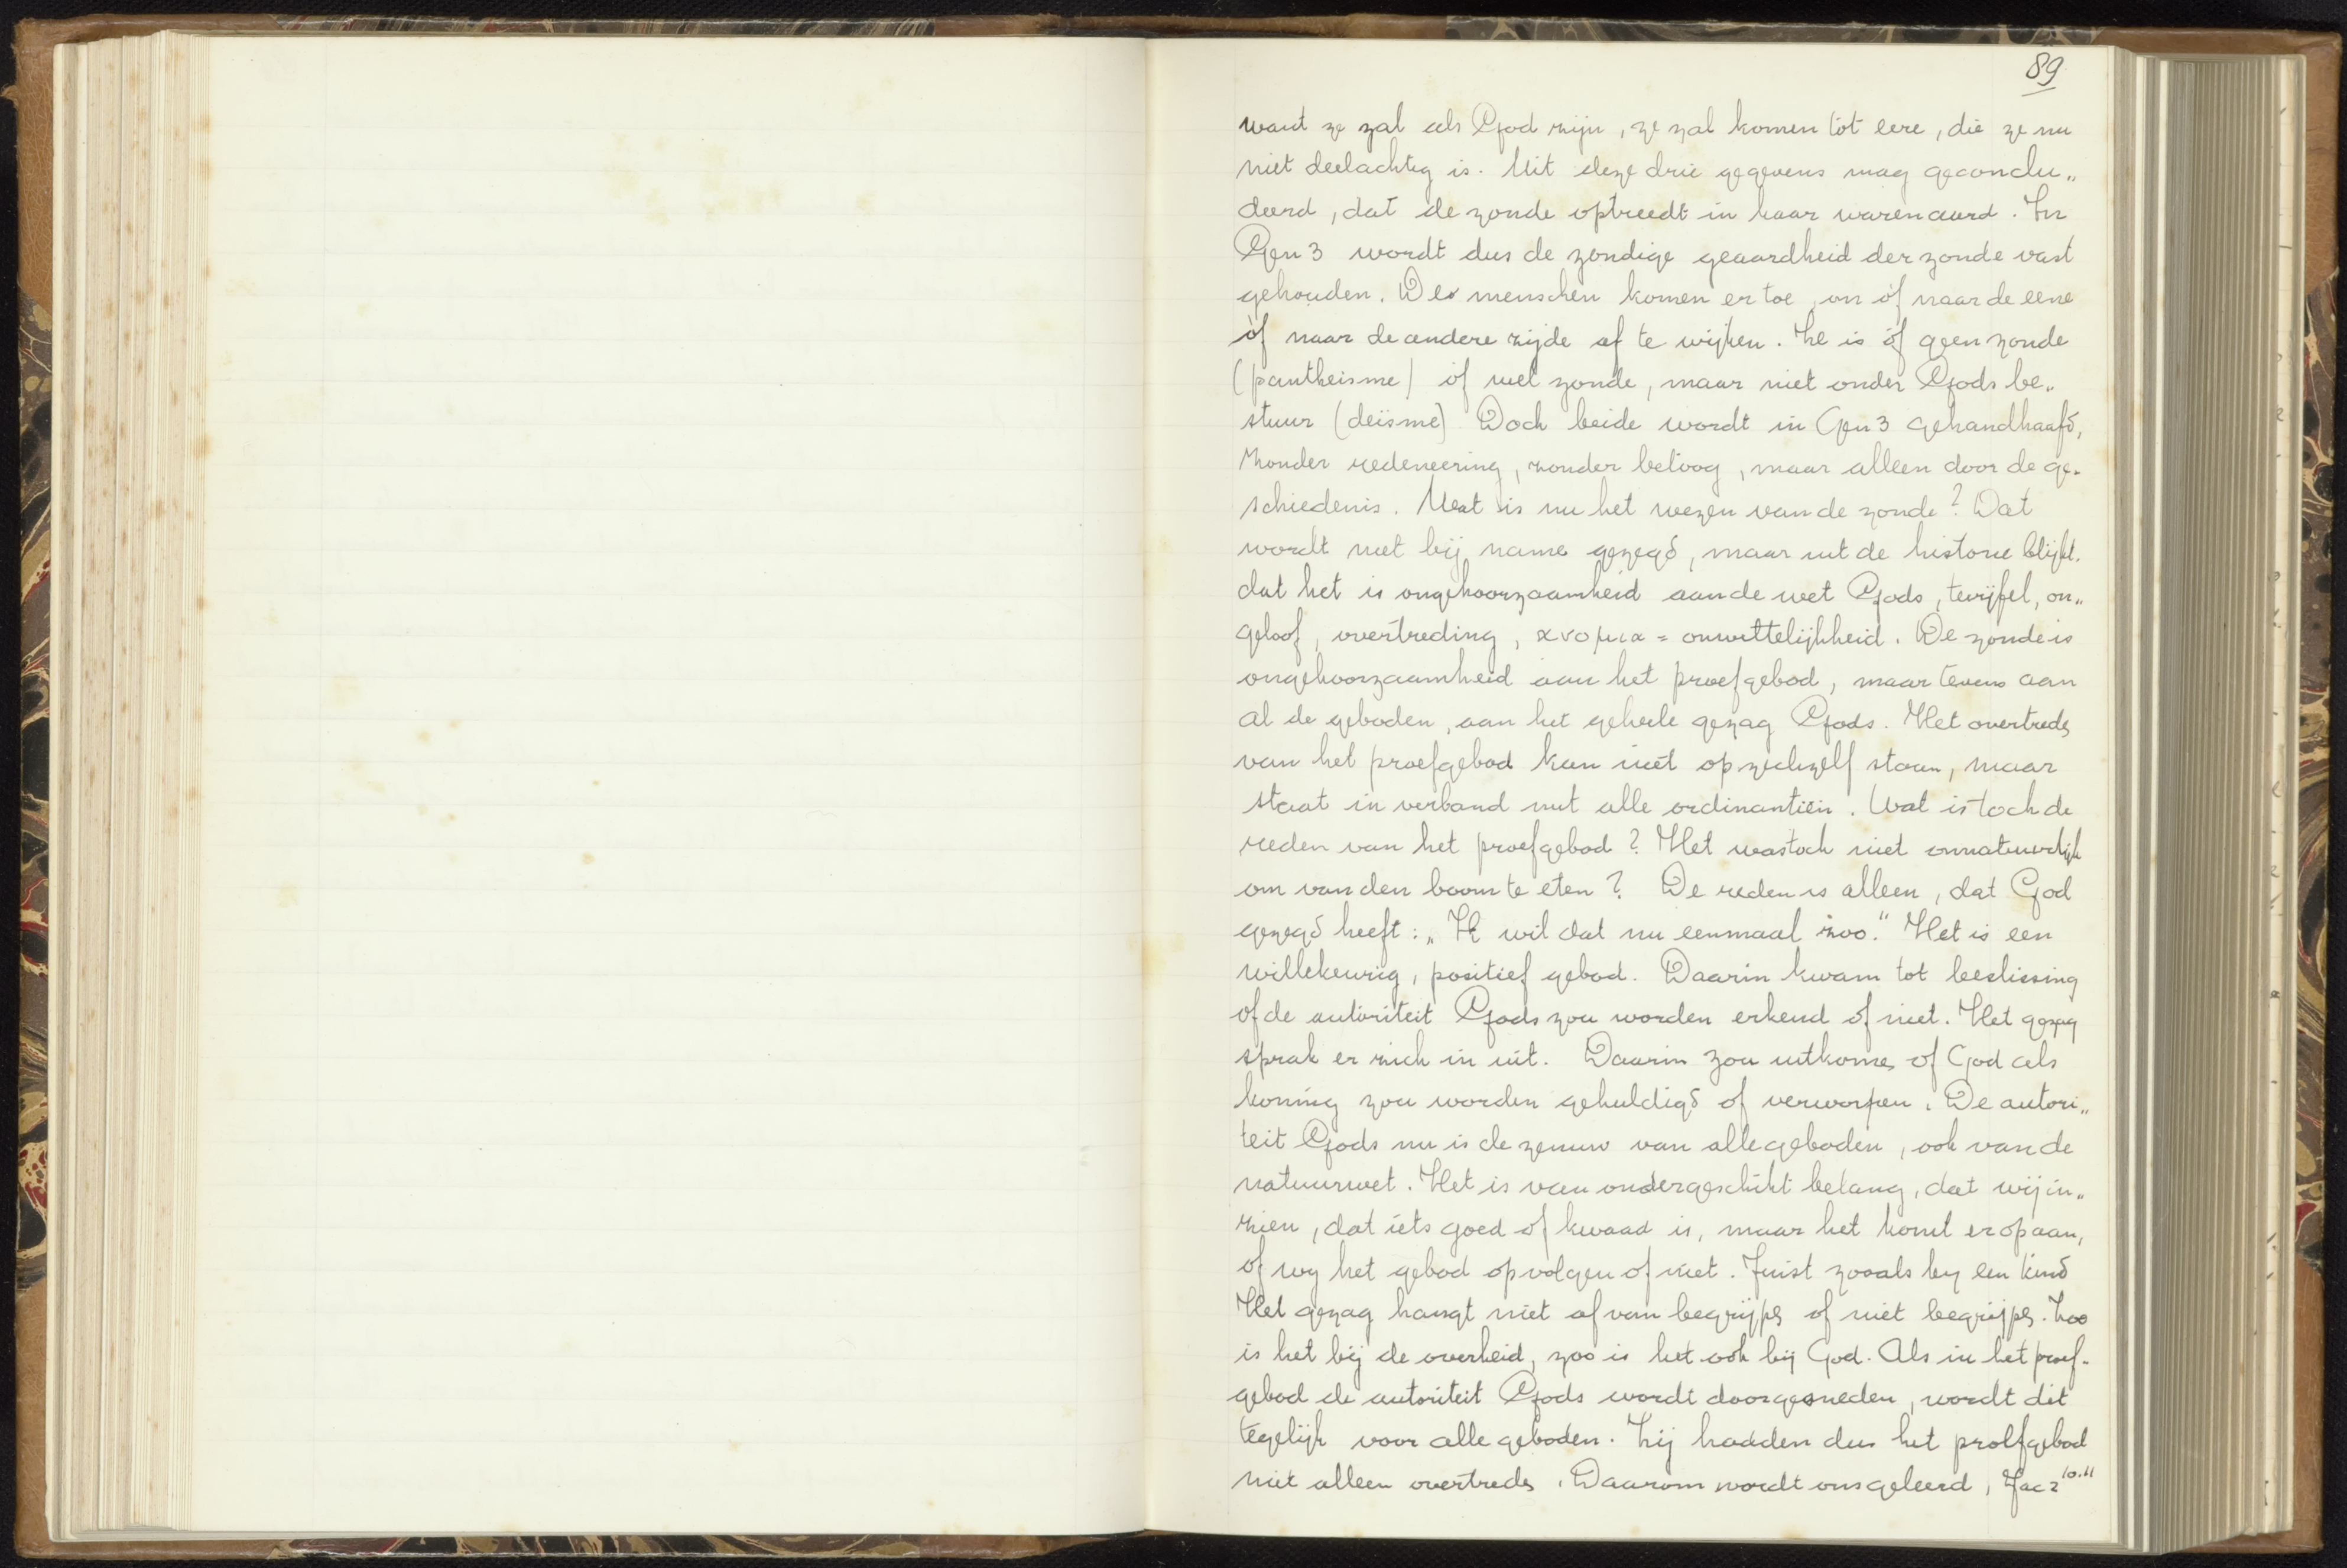 89
want ze zal als God zijn, ze zal komen tot eere, die ze nu
niet deelachtig is. Uit deze drie gegevens mag geconclu„
deerd, dat de zonde optreedt in haar waren aard. In
Gen 3 wordt dus de zondige geaardheid der zonde vast
gehouden. De menschen komen er toe, om òf naar de eene
òf naar de andere zijde af te wijken. Er is òf geen zonde
(pantheisme) òf wel zonde, maar niet onder Gods be„
stuur (deïsme) Doch beide wordt in Gen 3 gehandhaafd,
zonder redeneering, zonder betoog, maar alleen door de ge-
schiedenis. Wat is nu het wezen van de zonde? Dat
wordt niet bij name gezegd, maar uit de historie blijkt.
dat het is ongehoorzaamheid aan de wet Gods, twijfel, on„
geloof, overtreding, ανομια = onwettelijkheid. De zonde is
ongehoorzaamheid aan het proefgebod, maar tevens aan
al de geboden, aan het geheele gezag Gods. Het overtreden
van het proefgebod kan niet op zichzelf staan, maar
staat in verband met alle ordinantiën. Wat is toch de
reden van het proefgebod? Het was toch niet onnatuurlijk
om van den boom te eten? De reden is alleen, dat God
gezegd heeft: „Ik wil dat nu eenmaal zoo." Het is een
willekeurig, positief gebod. Daarin kwam tot beslissing
of de autoriteit Gods zou worden erkend of niet. Het gezag
sprak er zich in uit. Daarin zou uitkomen of God als
koning zou worden gehuldigd of verworpen. De autori„
teit Gods nu is de zenuw van alle geboden, ook van de
natuurwet. Het is van ondergeschikt belang, dat wij in„
zien, dat iets goed of kwaad is, maar het komt er op aan,
of wij het gebod opvolgen of niet. Juist zooals bij een kind
Het gezag hangt niet af van begrijpen of niet begrijpen. Zoo
is het bij de overheid, zoo is het ook bij God. Als in het proef-
gebod de autoriteit Gods wordt doorgesneden, wordt dit
tegelijk voor alle geboden. Zij hadden dus het proefgebod
niet alleen overtreden. Daarom wordt ons geleerd, Jac 2 10.11